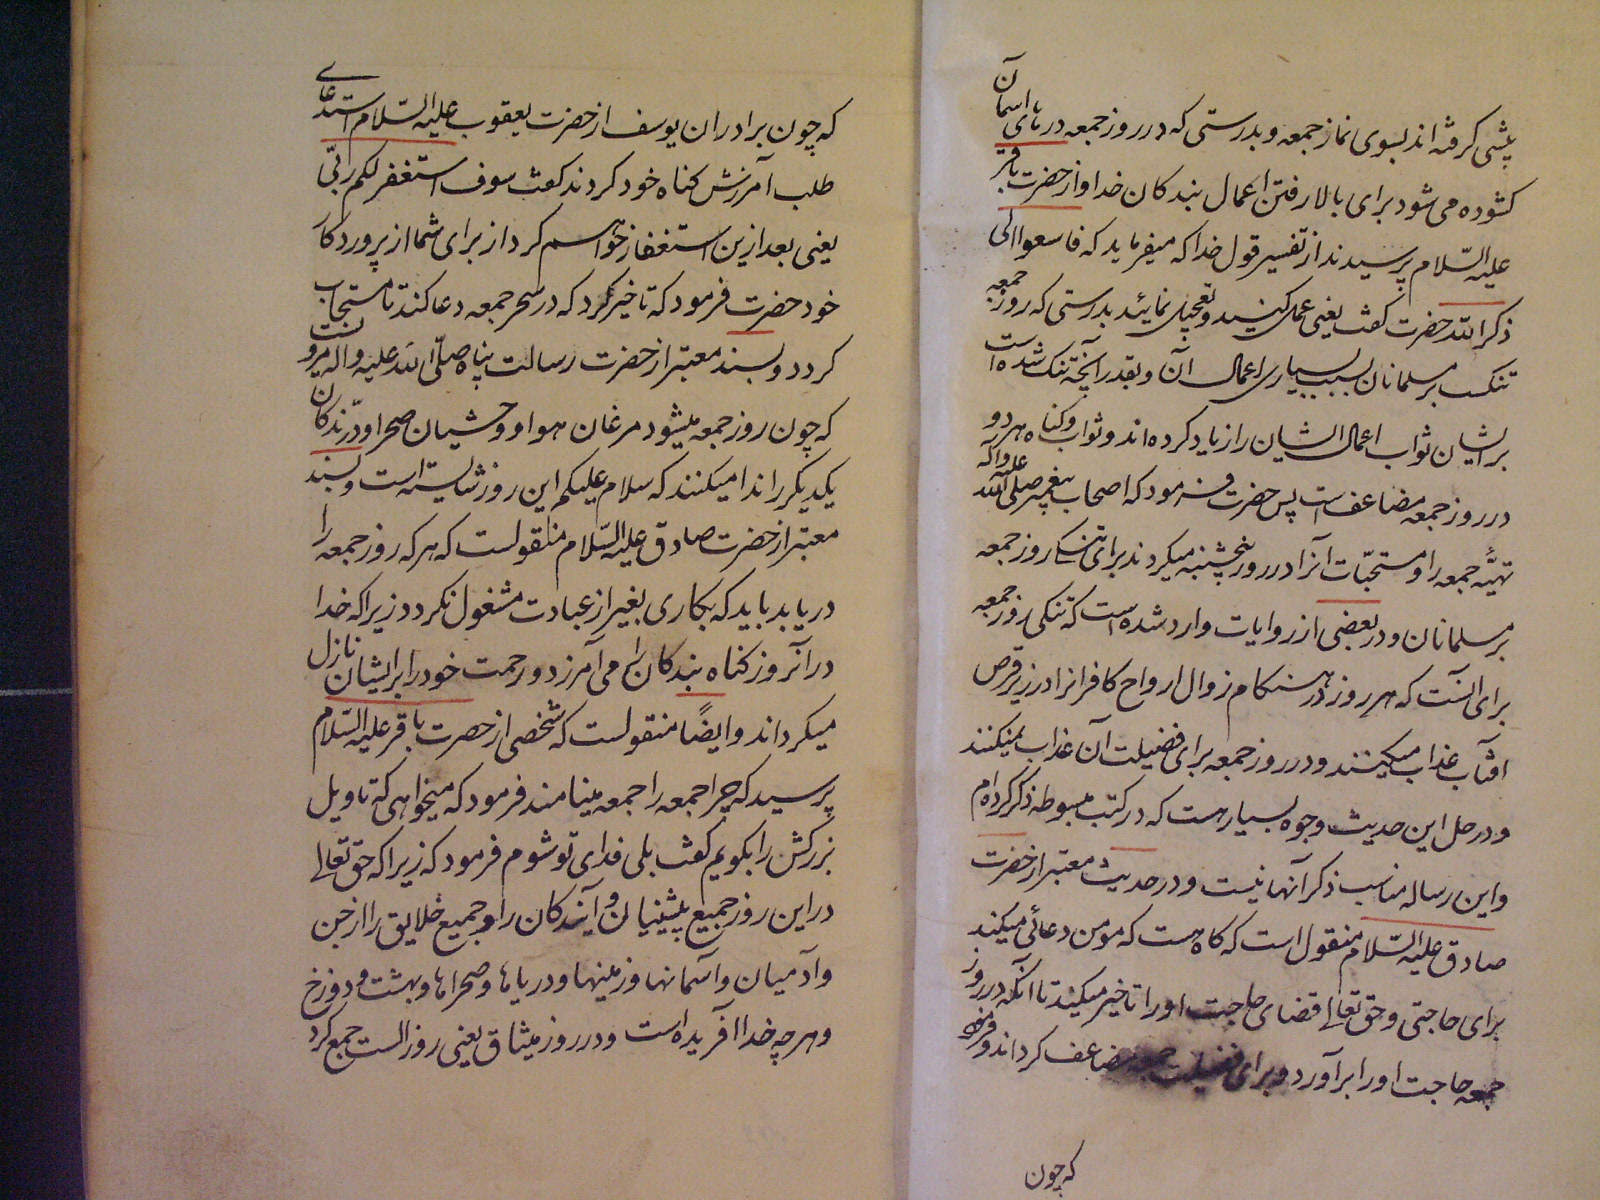 پیشی گرفته اند بسوی نماز جمعه و بدرستی که در روز جمعه درهای آسمان
کشوده می شود برای بالا رفتن اعمال بندکان خدا و از حضرت باقر
علیه السّلام پرسیدند از تفسیر قول خدا که میفرماید که فاسعوا الی
ذکر الله حضرت کفت یعنی عمل کنید و تعجیل نمائید بدرستی که روز جمعه
تنکست بر مسلمانان بسبب بسیاری اعمال آن و بقدر آنچه تنک شده است
بر ایشان ثواب اعمال ایشان را زیاد کرده اند و ثواب و کناه هر دو
در روز جمعه مضاعف است پس حضرت فرمود که اصحاب پیغمبر صلی الله علیه وآله
تهیّه جمعه را و مستحبّات آنرا در روز پنجشنبه میکردند برای تنکی روز جمعه
بر مسلمانان و در بعضی از روایات وارد شده است که تنکی روز جمعه
برای آنست که هر روز در هنکام زوال ارواح کافرانرا در زیر قرص
افتاب عذاب میکنند و در روز جمعه برای فضیلت آن عذاب نمیکنند
و در حل این حدیث وجوه بسیار هست که در کتب مبسوطه ذکر کرده ام
و این رساله مناسب ذکر آنها نیست و در حدیث معتبر از حضرت
صادق علیه السّلام منقول است که کاه هست که مومن دعائی میکند
برای حاجتی و حق تعالی قضای حاجت او را تاخیر میکند تا آنکه در روز
جمعه حاجت او را برآورد و برای فضیلت جمعه مضاعف کرداند و فرمود
که چون
که چون برادران یوسف از حضرت یعقوب علیه السّلام استدعای
طلب آمرزش کناه خود کردند کفت سوف استغفر لکم ربّی
یعنی بعد ازین استغفار خواهم کرد از برای شما از پروردکار
خود حضرت فرمود که تاخیر کرد که در سحر جمعه دعا کند تا مستجاب
کردد و بسند معتبر از حضرت رسالت پناه صلّی الله علیه واله مرویست
که چون روز جمعه میشود مرغان هوا و وحشیان صحرا و درّندکان
یکدیکر را ندا میکنند که سلام علیکم این روز شایسته است و بسند
معتبر از حضرت صادق علیه السّلام منقولست که هر که روز جمعه را
دریابد باید که بکاری بغیر از عبادت مشغول نکردد زیرا که خدا
در آنروز کناه بندکان را می آمرزد و رحمت خود را بر ایشان نازل
میکرداند و ایضًا منقولست که شخصی از حضرت باقر علیه السّلام
پرسید که چرا جمعه را جمعه مینامند فرمود که میخواهی که تاویل
بزرکش را بکویم کفت بلی فدای تو شوم فرمود که زیرا که حق تعالی
در این روز جمیع پیشینیان و آیندکان را و جمیع خلایق را از جن
و آدمیان و آسمانها و زمینها و دریاها و صحراها و بهشت و دوزخ
و هر چه خدا آفریده است و در روز میثاق یعنی روز الست جمع کرد